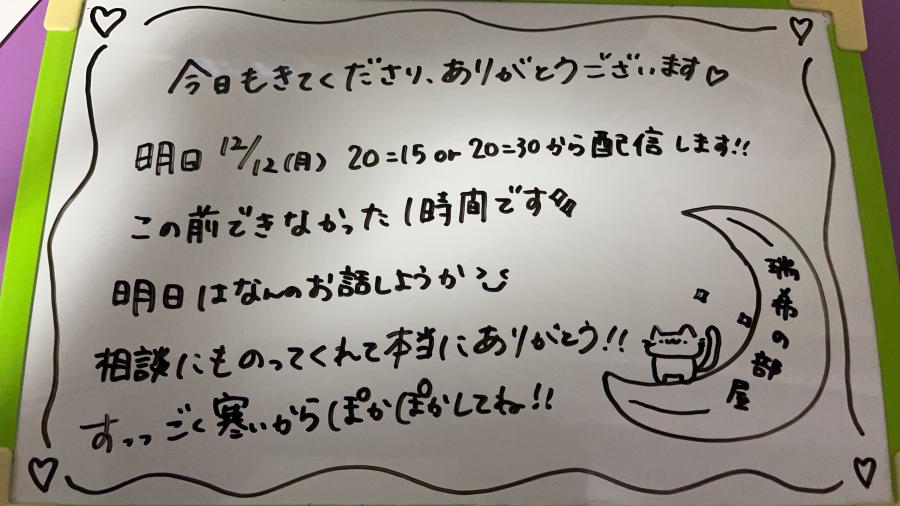 今日もきてくださり、ありがとうございます♡
明日 12/12(月) 20=15 or 20=30から配信します!!
この前できなかった1時間です
明日はなんのお話しようか
相談にものってくれて本当にありがとう!!
すっっごく寒いからぽかぽかしてね!!
瑞希の部屋